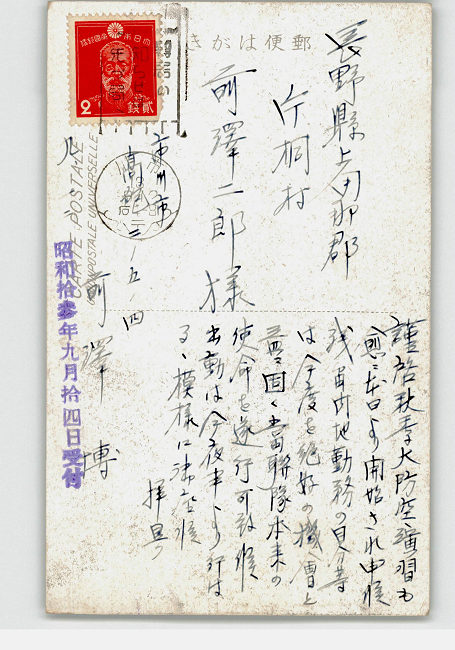 郵便はがき
大日本帝国郵便
2
貳銭
CARTE POSTALE
UNION POSTALE UNIVERSELLE
長野縣上伊那郡
片桐村
前澤二郎様
市川市
二ノ五ノ四
前澤博
昭和拾参年九月拾四日受付
謹啓秋季大防空演習も
愈々本日より開始され申候
残留内地勤務の自分等
は今度を絶好の機会と
當聯隊本来の
使命を遂行可致候
出動は今夜半より行は
るゝ模様に御座候
拝具